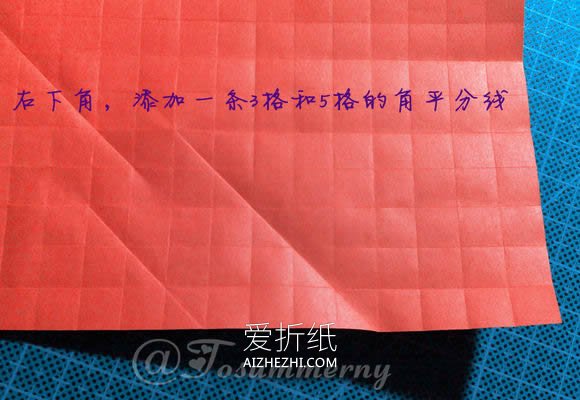 右下角，添加一条3格和5格的角平分线
爱折纸
AIZHEZHI.COM
@Tosummerny